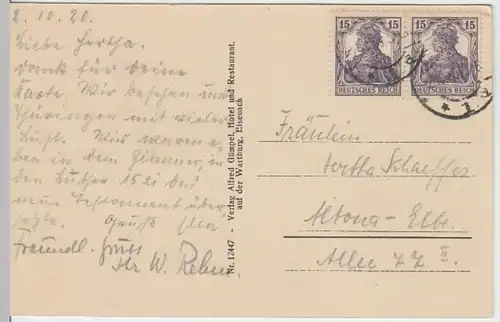 2. 10. 20.
Liebe Hertha.
Dank für deine
Karte. Wir besehen uns
Thüringen mit vieler
Lust. Wir waren e-
ben in dem Zimmer, in
dem Luther 1521 das
neue Testament über
setzte. Gruß
Freundl. Gruss
W. Rehm
Nr. 12447 - Verlag Alfred Glümpel, Hotel und Restaurant.
auf der Wartburg, Eisenach
15 15 15 15
DEUTSCHES REICH DEUTSCHES REICH
Fräulein
Hertha Schaeffer
Altona-Elbe.
Allee 77 II.